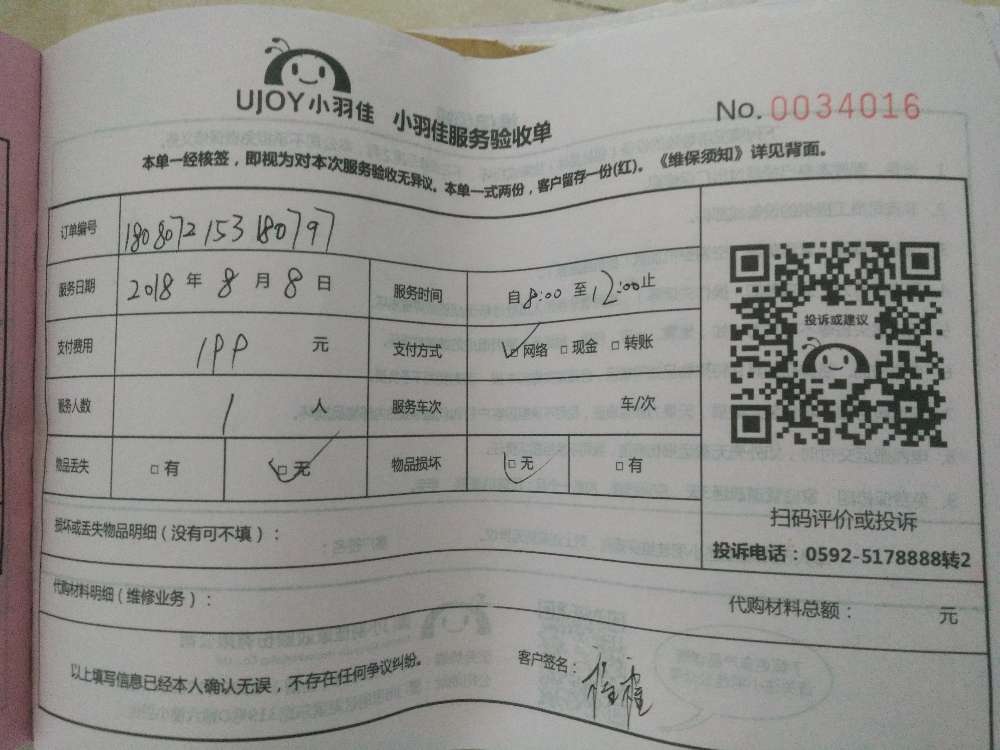 UJOY小羽佳 小羽佳服务验收单
No. 0034016
本单一经核签，即视为对本次服务验收无异议。本单一式两份，客户留存一份(红)。《维保须知》详见背面。
订单编号 1808072153180797
服务日期 2018 年 8 月 8 日 服务时间 自 8:00 至 12:00 止
支付费用 199 元 支付方式 □网络 □现金 □转账
服务人数 1 人 服务车次 车/次
物品丢失 □有 □无 物品损坏 □无 □有
投诉或建议
扫码评价或投诉
投诉电话：0592-5178888转2
损坏或丢失物品明细（没有可不填）：
代购材料明细（维修业务）： 代购材料总额： 元
以上填写信息已经本人确认无误，不存在任何争议纠纷。 客户签名：